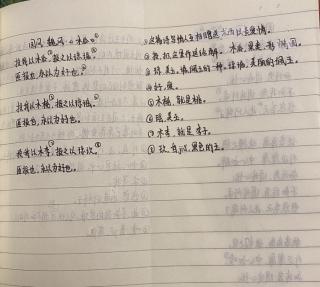 国风·魏风·木瓜①
投我以木瓜②,报之以琼琚③。
匪报也,永以为好也④。
投我以木桃⑤,报之以琼瑶⑥。
匪报也,永以为好也。
投我以木李⑦,报之以琼玖⑧。
匪报也,永以为好也。
①这首诗写情人互相赠送东西以表爱情。
②投,扔,这里作送给解。木瓜,果类,形椭圆。
③琼,美玉。琚,佩玉的一种。琼琚,美丽的佩玉。
④好,爱。
⑤木桃,就是桃。
⑥瑶,美玉。
⑦木李,就是李子。
⑧玖,音jiǔ,黑色的玉。